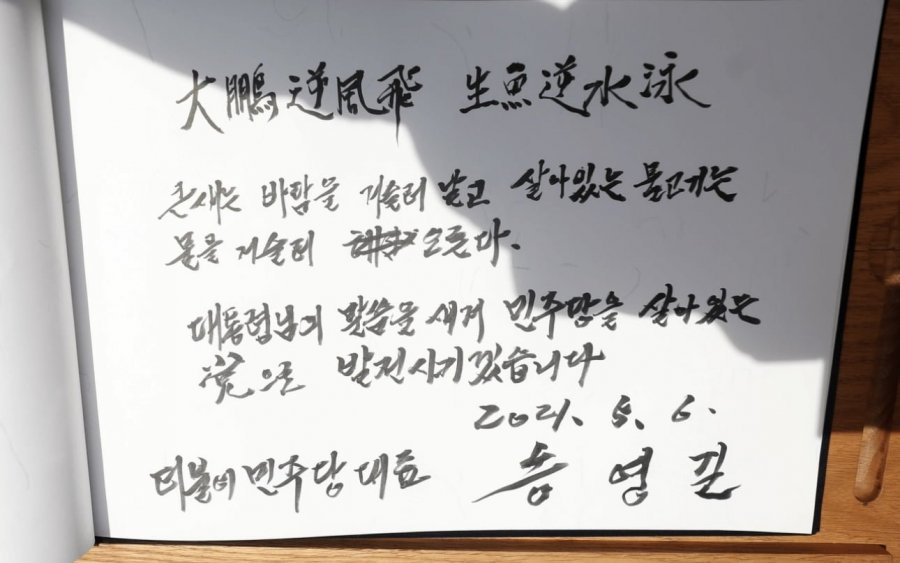 大鵬逆風飛 生魚逆水泳
큰새는 바람을 거슬러 날고 살아있는 물고기는
물을 거슬러 오른다.
대통령님의 말씀을 새겨 민주당을 살아있는
党으로 발전시키겠습니다
2021. 5. 6.
더불어민주당 대표 송영길